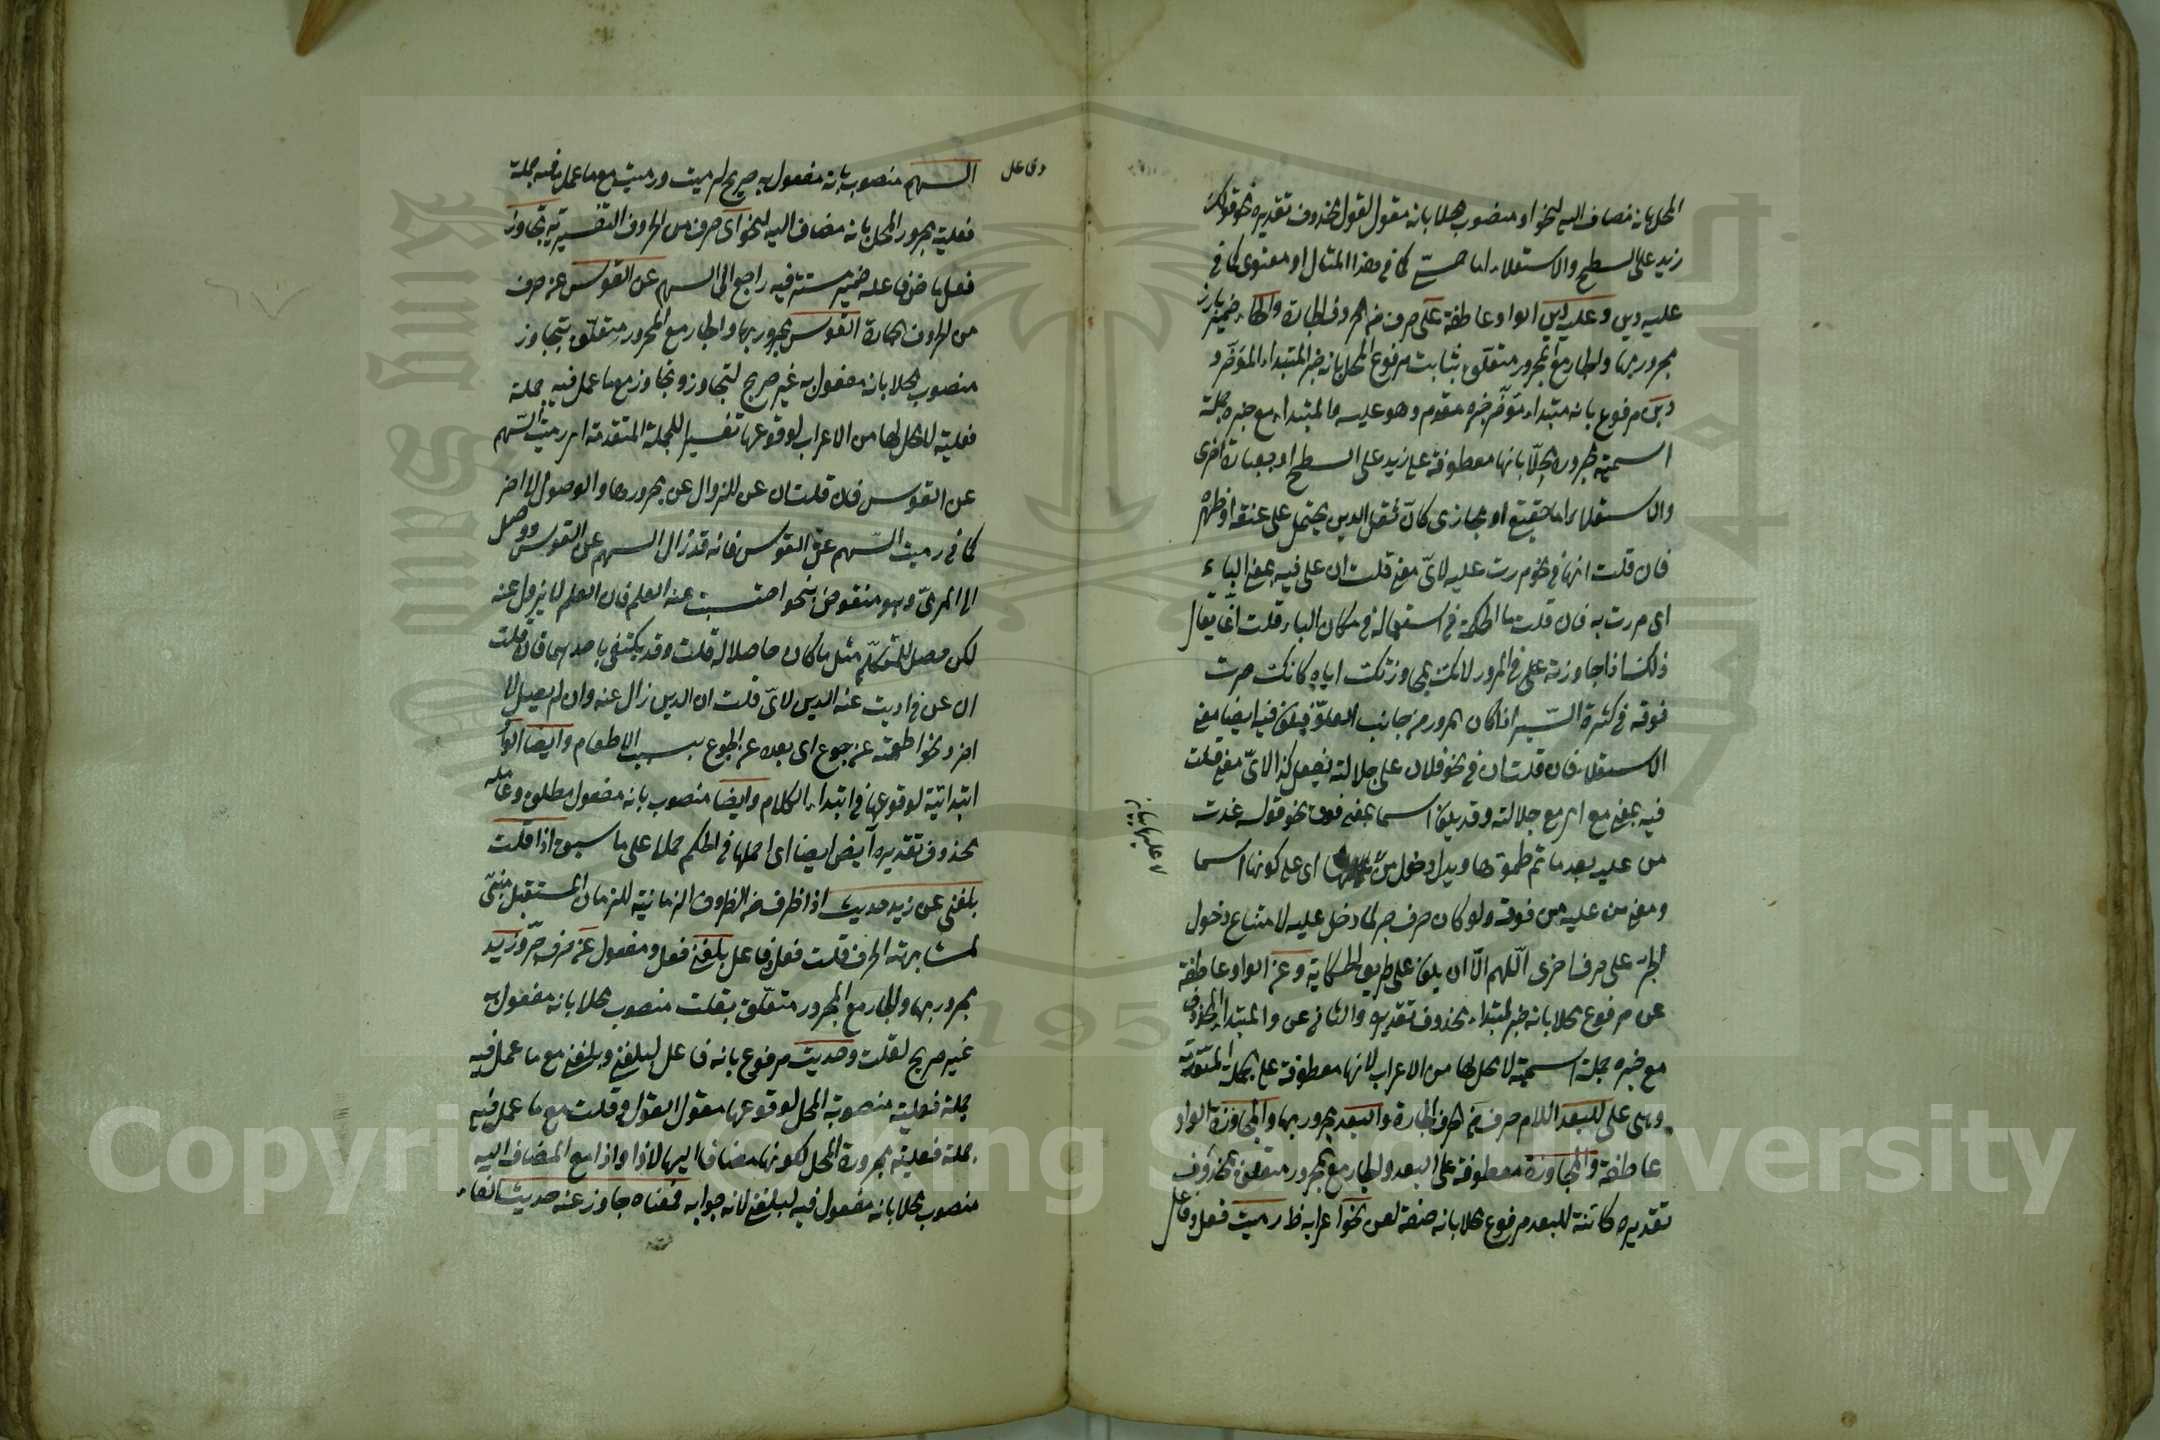 المحل بانه مضاف اليه لنحو او منصوب محلا بانه مقول لقول محذوف تقديره نحو قولك
زيد على السطح والاستعلاء اما حسي كما في هذا المثال او معنوي كما في
عليه دين وعليه دين الواو عاطفة على حرف من الحروف الجارة والهاء ضمير بارز
مجرور بها والجار مع المجرور متعلق بثابت مرفوع المحل بانه خبر المبتداء المؤخر و
دين مرفوع بانه مبتداء مؤخر خبره مقدم وهو عليه والمبتداء مع خبره جملة
اسمية مجرورة محلا بانها معطوفة على زيد على السطح او بعبارة اخرى
والاستعلاء اما حقيقي او مجازي كأن ثقل الدين يحتمل على عنقه او ظهره
فان قلت انها في نحو مررت عليه لاي معنى قلت ان على فيه بمعنى الباء
اي مررت به فان قلت ما الحكمة في استعماله في مكان الباء قلت انما يقال
ذلك اذا جاوزته على في المرور لانك بمجاوزتك اياه كانك صرت
فوقه في كثرة السير اذا كان المرور من جانب العلو فيكون فيه ايضا معنى
الاستعلاء فان قلت ان في نحو فلان على جلالته يفعل كذا لاي معنى قلت
فيه بمعنى مع اي مع جلالته وقد يكون اسما بمعنى فوق نحو قوله غدت
من عليه بعد ما تم ظمؤها ويدل دخول من عليها اي على كونها اسما
ومعنى من عليه من فوقه ولو كان حرف جر لما دخل عليه لامتناع دخول
الجر على حرف اخرى اللهم الا ان يكون على طريق الحكاية وعن الواو عاطفة
عن مرفوع محلا بانه خبر لمبتداء محذوف تقديره والثاني عن والمبتداء المحذوف
مع خبره جملة اسمية لا محل لها من الاعراب لانها معطوفة على الجملة
وهي على للبعد اللام حرف من الحرف الجارة والبعد مجرور بها والمجاوزة الواو
عاطفة والمجاوزة معطوفة على البعد والجار مع المجرور متعلق بمحذوف
تقديره كائنة للبعد مرفوع محلا بانه صفة لعن نحو اعرابه ظ رميت فعل وفاعل
لا عليها بيانه
وفاعل
السهم منصوب بانه مفعول به صريح لرميت ورميت مع ما عمل فيه جملة
فعلية مجرور المحل بانه مضاف اليه لنحو اي حرف من الحروف التفسيرية تجاوز
فعل ماض فاعله ضمير مستتر فيه راجع الى السهم عن القوس عن حرف
من الحروف الجارة القوس مجرور بها والجار مع المجرور متعلق بتجاوز
منصوب محلا بانه مفعول به غير صريح لتجاوز وتجاوز مع ما عمل فيه جملة
فعلية لا محل لها من الاعراب لوقوعها تفسيرا للجملة المتقدمة اي رميت السهم
عن القوس فان قلت ان عن للزوال عن مجرورها والوصول الى اخر
كما في رميت السهم عن القوس فانه قد زال السهم عن القوس ووصل
الى المرمى وهو منقوض بنحو احتسبت عنه العلم فان العلم لا يزول عنه
لكن حصل للمتكلم مثل ما كان حاصلا له قلت وقد يكتفى باحدهما فان قلت
ان عن في اديت عنه الدين لاي قلت ان الدين زال عنه وان لم يصل الى
اخر ونحو اطعمته عن جوع اي بعده عن الجوع بسبب الاطعام وايضا الواو
ابتدائية لوقوعها في ابتداء الكلام وايضا منصوب بانه مفعول مطلق وعامله
محذوف تقديره آيض ايضا اي احملها في الحكم حملا على ما سبق اذا قلت
بلغني عن زيد حديث اذا ظرف من الظروف الزمانية للزمان المستقبل مبني
لمشابهته الحرف قلت فعل وفاعل بلغني فعل ومفعول عن حرف جر وزيد
مجرور بها والجار مع المجرور متعلق بقلت منصوب محلا بانه مفعول به
غير صريح لقلت وحديث مرفوع بانه فاعل لبلغني وبلغني مع ما عمل فيه
جملة فعلية منصوبة المحل لوقوعها مقول القول وقلت مع ما عمل فيه
جملة فعلية مجرورة المحل لكونها مضافا اليها لاذا واذا مع المضاف اليه
منصوب محلا بانه مفعول فيه لبلغني لانه جوابه فمعناه جاوز عنه حديث الفاء
Copyright © King Saud University
1957